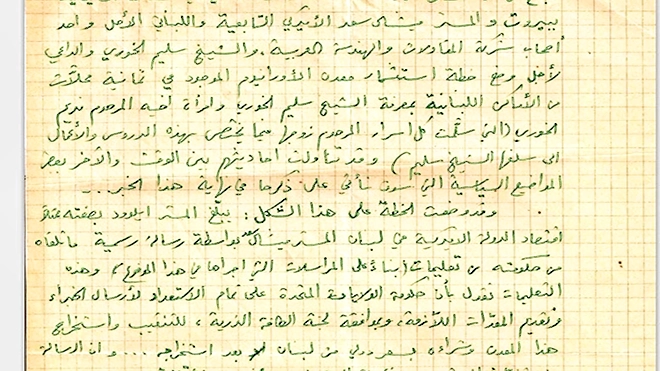 ببيروت والمستر ميشال سعد الأميركي التابعية واللبناني الأصل واحد
أصحاب شركة المقاولات والهندسة العربية، والشيخ سليم الخوري والداعي
لأجل وضع خطة استثمار معدن الأورانيوم الموجود في ثمانية محلات
من الأماكن اللبنانية بمعرفة الشيخ سليم الخوري وامرأة اخيه المرحوم نديم
الخوري (التي سلّمت كل اسرار المرحوم زوجها فيما يختص بهذه الدروس والأعمال
الى سلفها الشيخ سليم) وقد تناولت احاديثهم بين الوقت والآخر بعض
المواضيع السياسية التي سوف نأتي على ذكرها في نهاية هذا الخبر...
وقد وضعت الخطة على هذا الشكل: يبلّغ المستر بصفته ممثلاً
اقتصاد الدولة الاميركية في لبنان المستر ميشال سعد بواسطة رسالة رسمية ما تلقاه
من حكومته من تعليمات (بناءً على المراسلات التي اجراها في هذا الموضوع)، وهذه
التعليمات تقول بأن حكومة الولايات المتحدة على تمام الاستعداد لأرسال الخبراء
وتقديم المعدّات اللازمة، وبموافقة لجنة الطاقة الذرية، للتنقيب واستخراج
هذا المعدن وشراءه بسعر دولي من لبنان بعد استخراجه... وان الرسالة